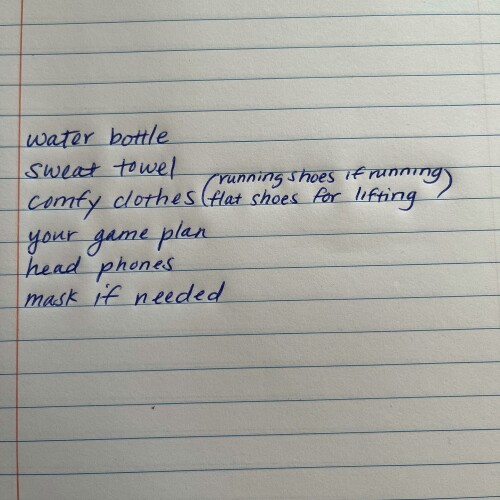 water bottle
sweat towel
comfy clothes (running shoes if running
flat shoes for lifting)
your game plan
head phones
mask if needed